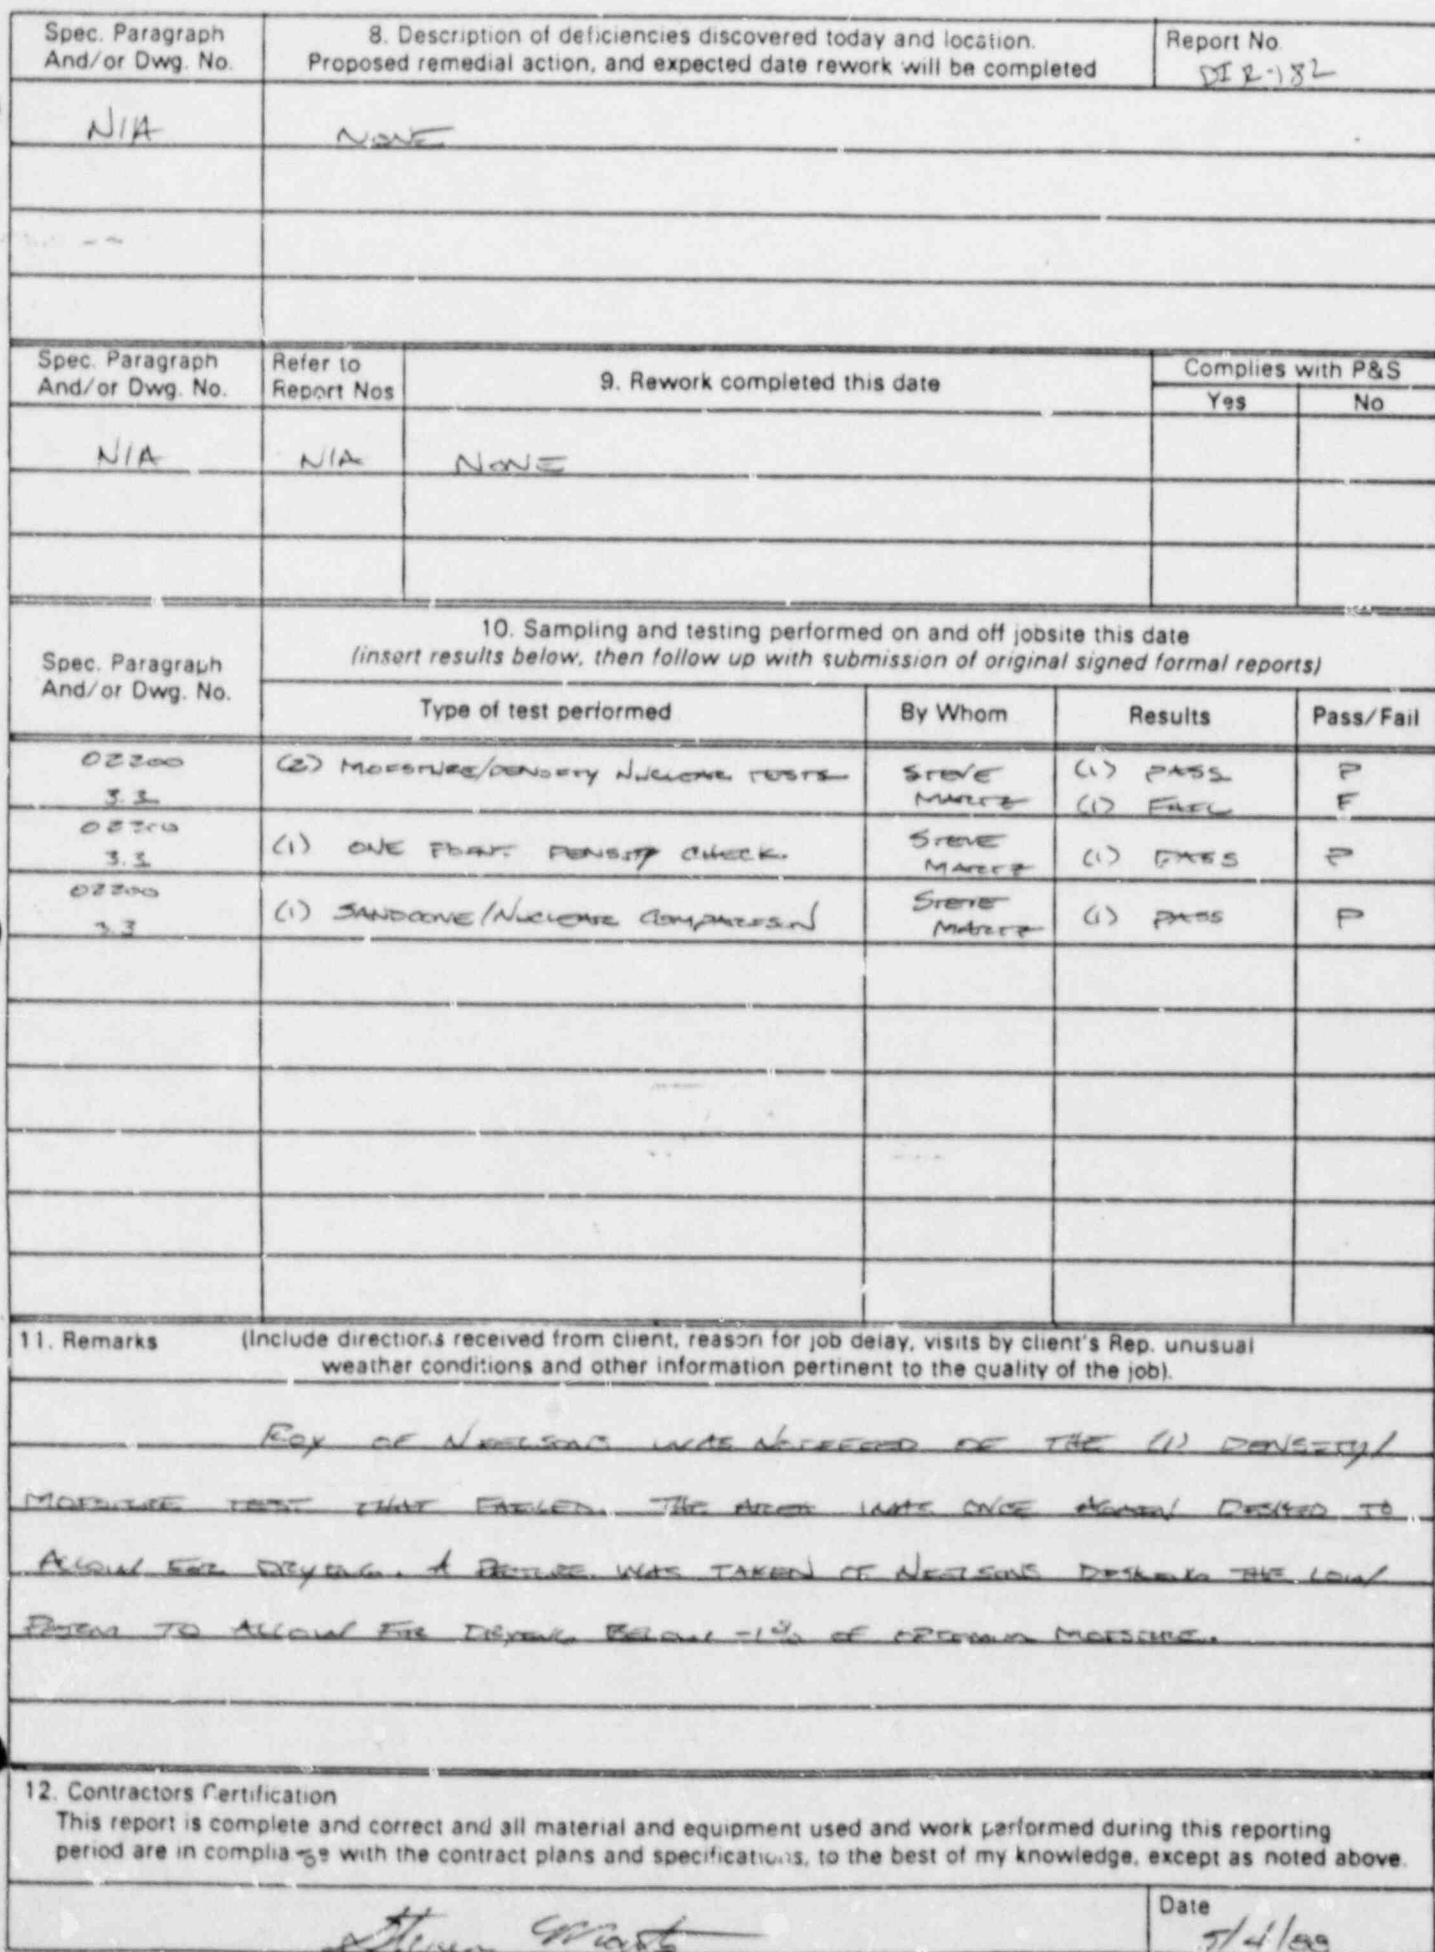 Spec. Paragraph
And/or Dwg. No.
8. Description of deficiencies discovered today and location.
Proposed remedial action, and expected date rework will be completed
Report No.
DIR-182
N/A
NONE
Spec. Paragraph
And/or Dwg. No.
Refer to
Report Nos
9. Rework completed this date
Complies with P&S
Yes
No
N/A
N/A
NONE
Spec. Paragraph
And/or Dwg. No.
10. Sampling and testing performed on and off jobsite this date
(insert results below, then follow up with submission of original signed formal reports)
Type of test performed
By Whom
Results
Pass/Fail
02200
3.3
(2) MOISTURE/DENSITY NUCLEAR TESTS
STEVE
(1) PASS
P
(1) FAIL
F
02200
3.3
(1) ONE POINT DENSITY CHECK.
STEVE
(1) PASS
P
02200
3.3
(1) SANDCONE/NUCLEAR COMPARISON
STEVE
(1) PASS
P
11. Remarks
(Include directions received from client, reason for job delay, visits by client's Rep. unusual
weather conditions and other information pertinent to the quality of the job).
OF NEILSONS WAS NOTIFIED OF THE (1) DENSITY/
MOISTURE TEST THAT FAILED. THE AREA WAS ONCE AGAIN DISKED TO
ALLOW FOR DRYING. A PICTURE WAS TAKEN OF NEILSONS DISKING THE LOW
TO ALLOW FOR DRYING BELOW -1% OF OPTIMUM MOISTURE.
12. Contractors Certification
This report is complete and correct and all material and equipment used and work performed during this reporting
period are in compliance with the contract plans and specifications, to the best of my knowledge, except as noted above.
Date